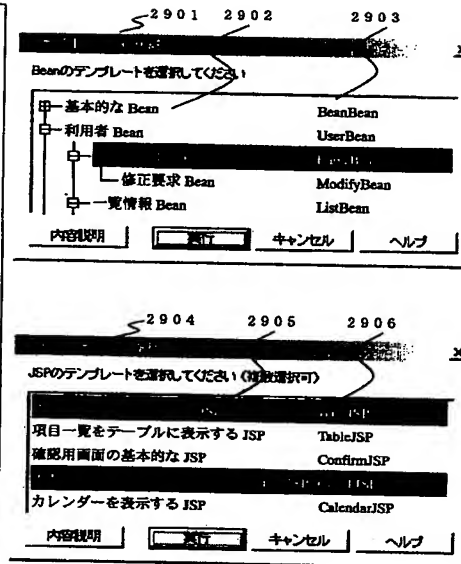 2901 2902 2903
Beanのテンプレートを選択してください
基本的な Bean BeanBean
利用者 Bean UserBean
修正要求 Bean ModifyBean
一覧情報 Bean ListBean
内容説明 実行 キャンセル ヘルプ
2904 2905 2906
JSPのテンプレートを選択してください（複数選択可）
JSP
項目一覧をテーブルに表示する JSP TableJSP
確認用画面の基本的な JSP ConfirmJSP
カレンダーを表示する JSP CalendarJSP
内容説明 実行 キャンセル ヘルプ